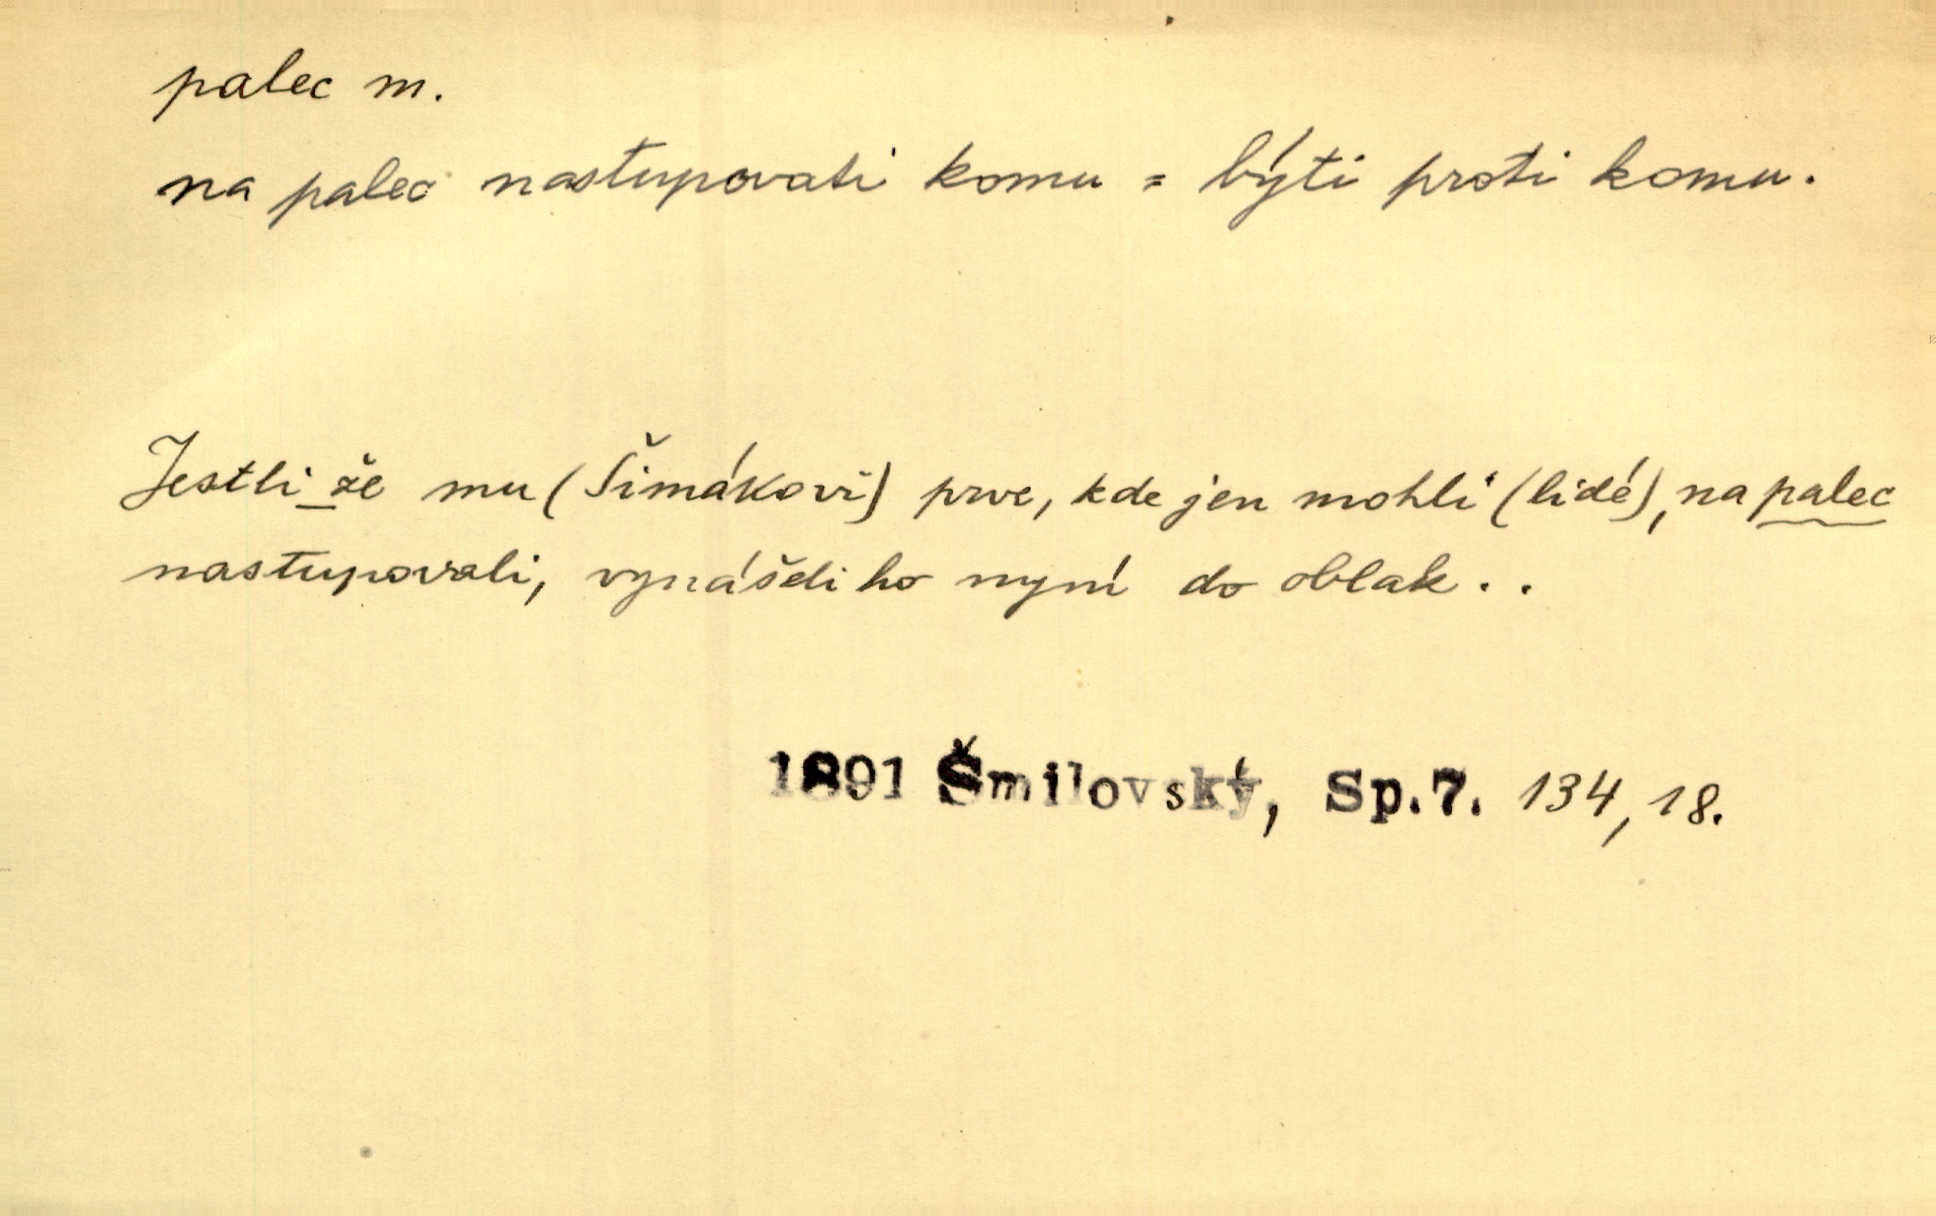 palec m.
na palec nastupovati komu = býti proti komu.
Jestli_že mu (Šimákovi) prve, kde jen mohli (lidé), na palec
nastupovali, vynášeli ho nyní do oblak . .
1891 Šmilovský, Sp.7. 134, 18.